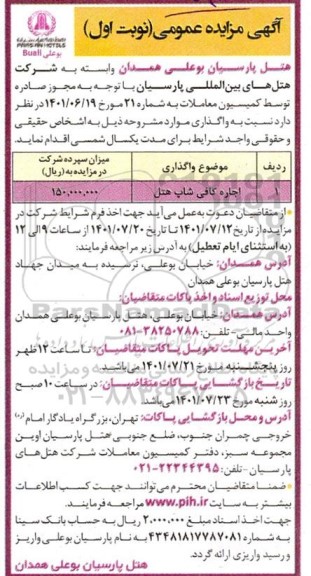 PARSIAN HOTELS
بوعلی Buali
آگهی مزایده عمومی (نوبت اول)
هتل پارسیان بوعلی همدان وابسته به شرکت
هتل‌های بین‌المللی پارسیان با توجه به مجوز صادره
توسط کمیسیون معاملات به شماره ۲۱ مورخ ۱۴۰۱/۰۶/۱۹ در نظر
دارد نسبت به واگذاری موارد مشروحه ذیل به اشخاص حقیقی
و حقوقی واجد شرایط برای مدت یکسال شمسی اقدام نماید.
ردیف موضوع واگذاری میزان سپرده شرکت
در مزایده به (ریال)
۱ اجاره کافی شاپ هتل ۱۵۰,۰۰۰,۰۰۰
از متقاضیان دعوت به عمل می‌آید جهت اخذ فرم شرایط شرکت در
مزایده از تاریخ ۱۴۰۱/۰۷/۱۲ تا تاریخ ۱۴۰۱/۰۷/۲۰ از ساعات ۹ الی ۱۲
(به استثنای ایام تعطیل) به آدرس زیر مراجعه فرمایند:
آدرس همدان: خیابان بوعلی، نرسیده به میدان جهاد
هتل پارسیان بوعلی همدان
محل توزیع اسناد و اخذ پاکات متقاضیان:
آدرس همدان: خیابان بوعلی، هتل پارسیان بوعلی همدان
واحد مالی - تلفن: ۳۸۲۵۰۷۸۸-۰۸۱
آخرین مهلت تحویل پاکات متقاضیان: تا ساعت ۱۲ ظهر
روز پنجشنبه مورخ ۱۴۰۱/۰۷/۲۱ می‌باشد
تاریخ بازگشایی پاکات متقاضیان: در ساعت ۱۰ صبح
روز شنبه مورخ ۱۴۰۱/۰۷/۲۳ می‌باشد
آدرس و محل بازگشایی پاکات: تهران، بزرگراه یادگار امام (ره)
خروجی چمران جنوب، ضلع جنوبی هتل پارسیان اوین
مجموعه سبز، دفتر کمیسیون معاملات شرکت هتل‌های
پارسیان - تلفن: ۲۲۳۴۴۳۹۵-۰۲۱
ضمنا متقاضیان محترم می‌توانند جهت کسب اطلاعات
بیشتر به سایت www.pih.ir مراجعه فرمایند.
جهت اخذ اسناد مبلغ ۲,۰۰۰,۰۰۰ ریال به حساب بانک سینا
به شماره ۴۳۴۸۱۸۱۷۷۸۷۰۸۱ به نام پارسیان بوعلی واریز
و رسید واریزی ارائه گردد.
هتل پارسیان بوعلی همدان